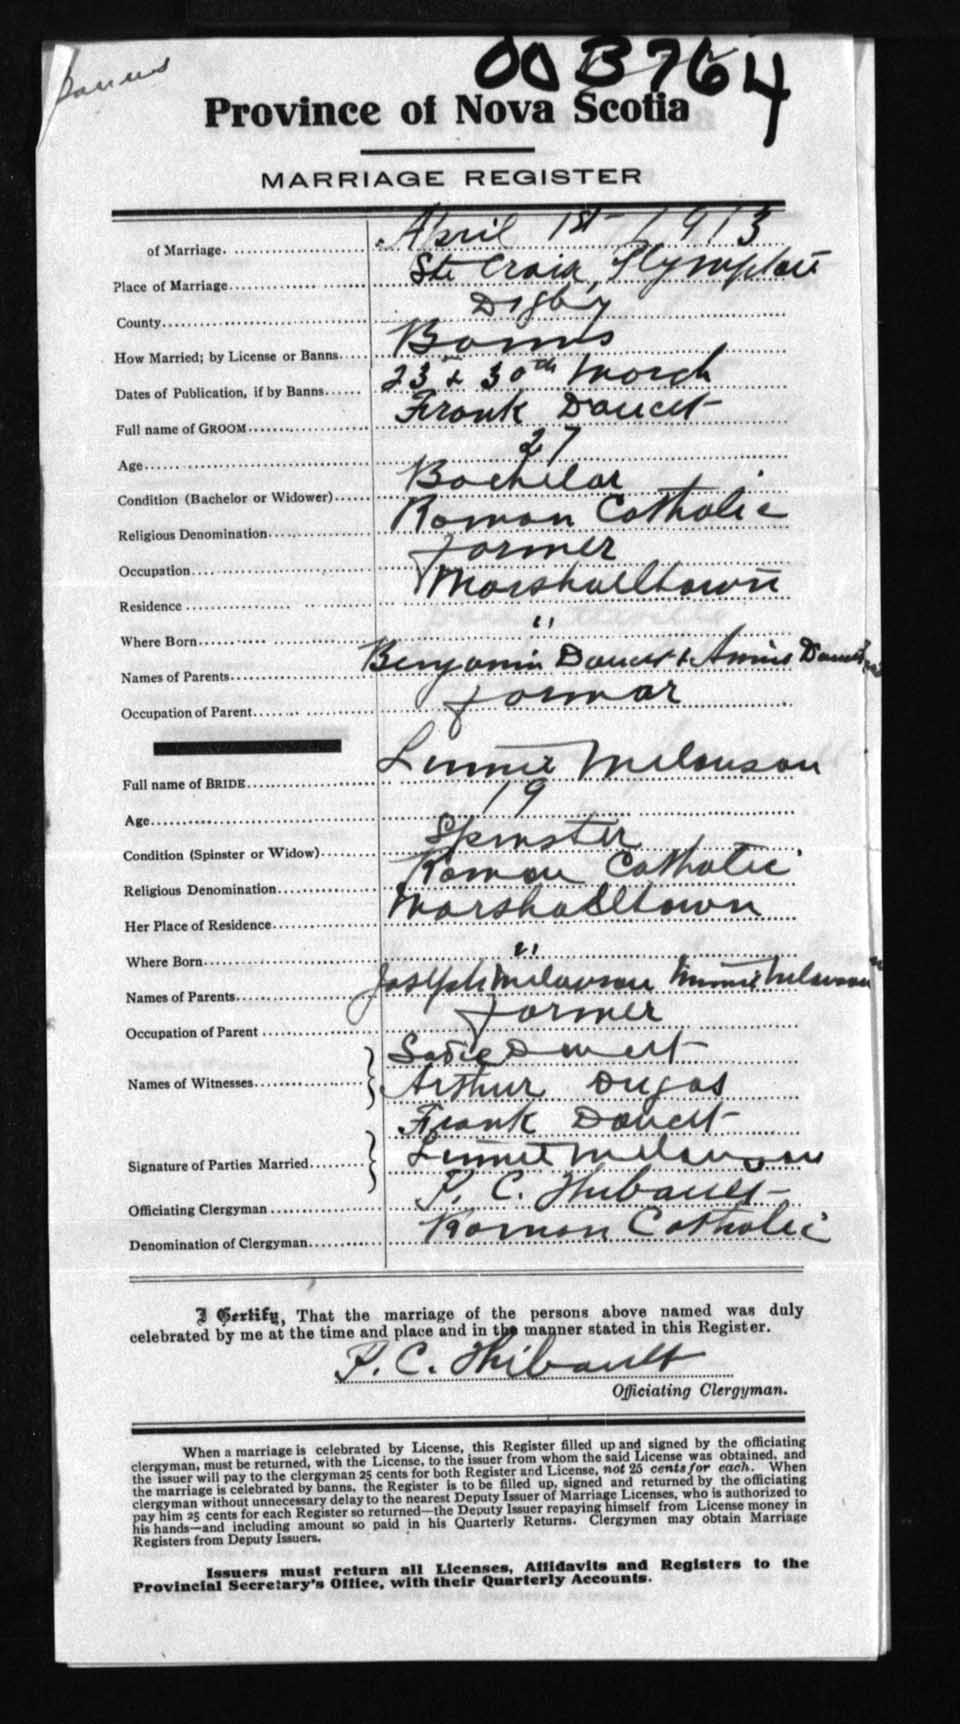 Banns
003764
Province of Nova Scotia
MARRIAGE REGISTER
of Marriage April 1st 1913
Place of Marriage Ste Croix, Plympton
County Digby
How Married; by License or Banns Banns
Dates of Publication, if by Banns 23 & 30th March
Full name of GROOM Frank Doucet
Age 27
Condition (Bachelor or Widower) Bachelor
Religious Denomination Roman Catholic
Occupation Farmer
Residence Marshalltown
Where Born "
Names of Parents Benjamin Doucet & Annie Doucet
Occupation of Parent Farmar
Full name of BRIDE Linnie Melanson
Age 19
Condition (Spinster or Widow) Spinster
Religious Denomination Roman Catholic
Her Place of Residence Marshalltown
Where Born "
Names of Parents Joseph Melanson Minnie Melanson
Occupation of Parent Farmer
Names of Witnesses Sadie Doucet
Arthur Dugas
Signature of Parties Married Frank Doucet
Linnie Melanson
Officiating Clergyman P. C. Thibault
Denomination of Clergyman Roman Catholic
I Certify, That the marriage of the persons above named was duly
celebrated by me at the time and place and in the manner stated in this Register.
P. C. Thibault
Officiating Clergyman.
When a marriage is celebrated by License, this Register filled up and signed by the officiating
clergyman, must be returned, with the License, to the issuer from whom the said License was obtained, and
the issuer will pay to the clergyman 25 cents for both Register and License, not 25 cents for each. When
the marriage is celebrated by banns, the Register is to be filled up, signed and returned by the officiating
clergyman without unnecessary delay to the nearest Deputy Issuer of Marriage Licenses, who is authorized to
pay him 25 cents for each Register so returned—the Deputy Issuer repaying himself from License money in
his hands—and including amount so paid in his Quarterly Returns. Clergymen may obtain Marriage
Registers from Deputy Issuers.
Issuers must return all Licenses, Affidavits and Registers to the
Provincial Secretary's Office, with their Quarterly Accounts.